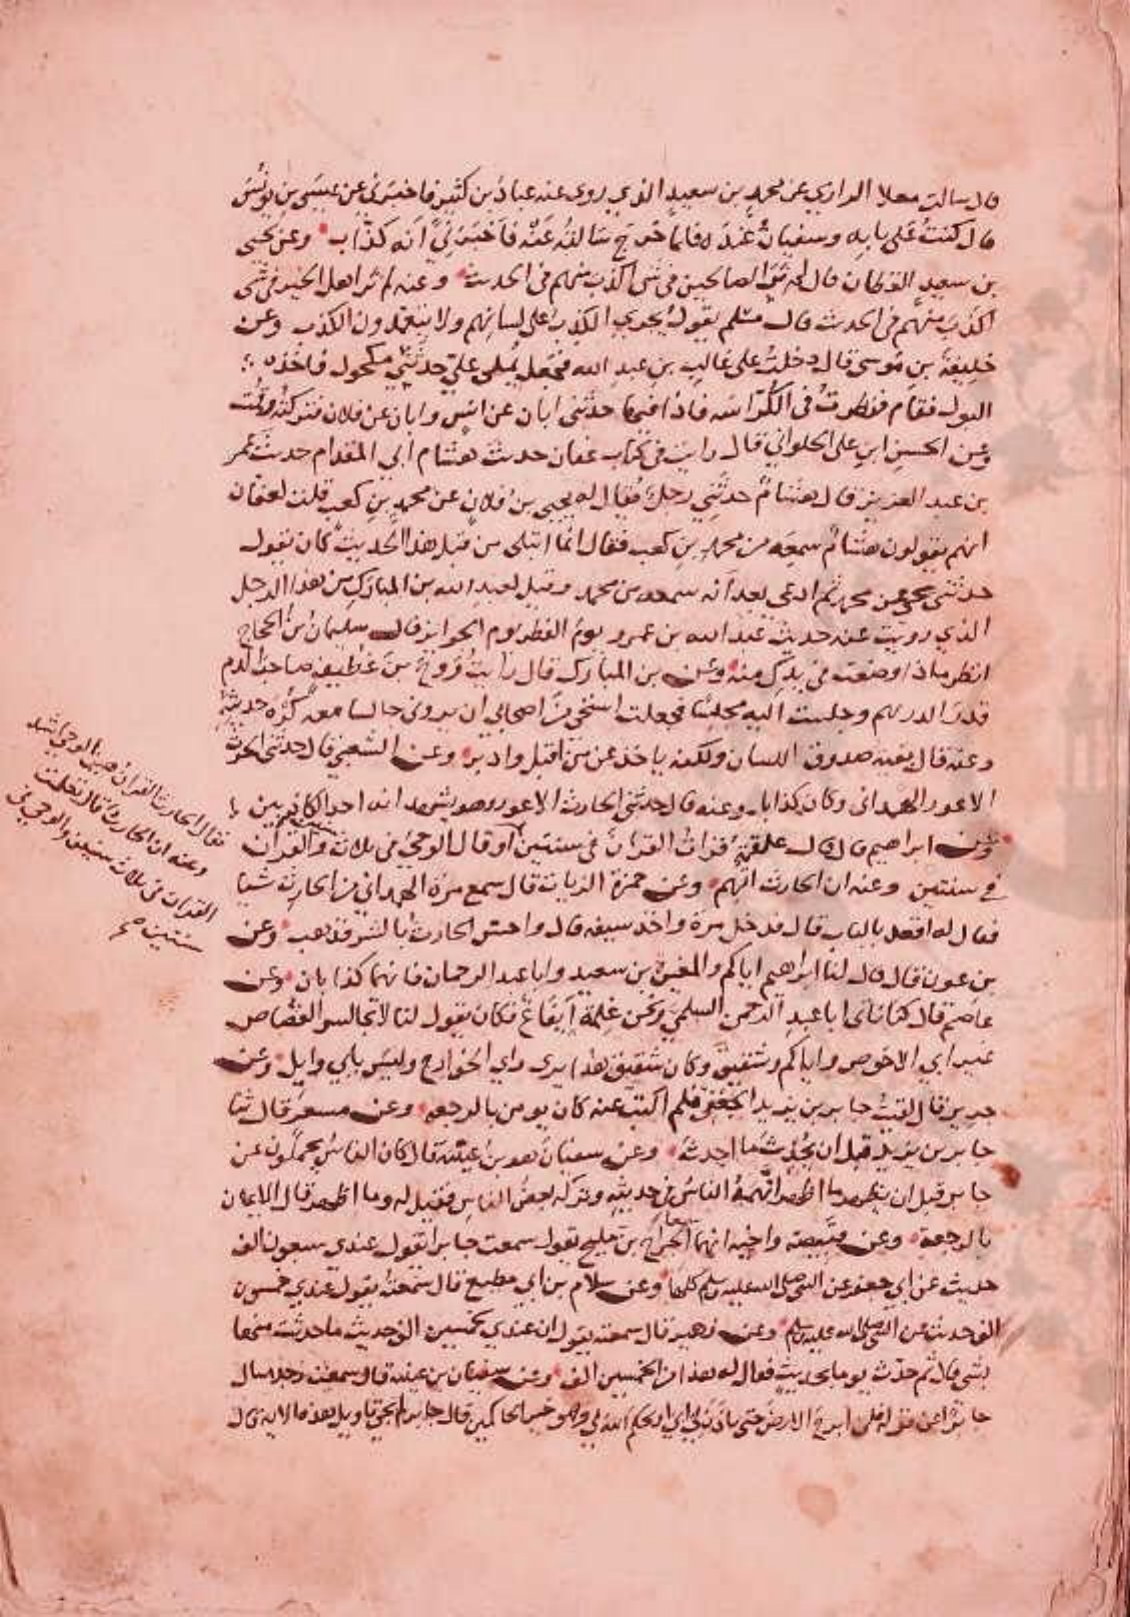 قال سالت معلا الرازي عن محمد بن سعيد الذي روى عنه عباد بن كثير فاخبرني عن عيسى بن يونس
قال كنت على بابه وسفيان عنده فلما خرج سالته عنه فاخبرني انه كذاب وعن يحيى
بن سعيد القطان قال لم تر الصالحين في شي اكذب منهم في الحديث وعنه لم تر اهل الخير في شي
اكذب منهم في الحديث قال مسلم يقول يجري الكذب على لسانهم ولا يتعمدون الكذب وعن
خليفة بن موسى قال دخلت على غالب بن عبد الله فجعل يملي علي حدثني مكحول فاخذه
البول فقام فنظرت في الكراسه فاذا فيها حدثني ابان عن انس وابان عن فلان فتركته وقمت
وعن الحسن ابن علي الحلواني قال رايت في كتاب عفان حديث هشام ابي المقدام حديث عمر
بن عبد العزيز قال هشام حدثني رجل يقال له يحيى بن فلان عن محمد بن كعب قلت لعفان
انهم يقولون هشام سمعه من محمد بن كعب فقال انما ابتلي من قبل هذا الحديث كان يقول
حدثني يحيى عن محمد ثم ادعى بعد انه سمعه من محمد وقيل لعبد الله بن المبارك من هذا الرجل
الذي رويت عنه حديث عبد الله بن عمرو يوم الفطر يوم الجوايز قال سليمان بن الحجاج
انظر ماذا وضعت في يدك منه وعن بن المبارك قال رايت روح بن غطيف صاحب الدم
قدر الدرهم وجلست اليه مجلسا فجعلت استحي من اصحابي ان يروني جالسا معه كره حديثه
وعنه قال بقية صدوق اللسان ولكنه ياخذ عن من اقبل وادبر وعن الشعبي قال حدثني الحرث
الاعور الهمداني وكان كذابا وعنه قال حدثني الحارث الاعور وهو يشهد انه احد الكاذبين
وعن ابراهيم قال قال علقمة قرات القران في سنتين او قال الوحي في ثلاث والقران
في سنتين وعنه ان الحارث اتهم وعن حمزة الزيات قال سمع مرة الهمداني من الحارث شيا
فقال له اقعد بالباب قال فدخل مرة واخذ سيفه قال واحس الحارث بالشر فذهب وعن
بن عون قال قال لنا ابراهيم اياكم والمغيرة بن سعيد وابا عبد الرحمان فانهما كذابان وعن
عاصم قال كنا ناتي ابا عبد الرحمن السلمي ونحن غلمة ايفاع فكان يقول لنا لا تجالسوا القصاص
غير ابي الاحوص واياكم وشقيق وكان شقيق هذا يرى راي الخوارج وليس بابي وايل وعن
جرير قال لقيت جابر بن يزيد الجعفي فلم اكتب عنه كان يومن بالرجعه وعن مسعر قال ثنا
جابر بن يزيد قبل ان يحدث ما احدثه وعن سفيان هو بن عيينه قال كان الناس يحملون عن
جابر قبل ان يظهر ما اظهر اتهمه الناس في حديثه وتركه بعض الناس فقيل له وما اظهر قال الايمان
بالرجعه وعن قبيصه واخيه انهما سمعا الجراح بن مليح يقول سمعت جابرا يقول عندي سبعون الف
حديث عن ابي جعفر عن النبي صلى الله عليه وسلم كلها وعن سلام بن ابي مطيع قال سمعته يقول عندي خمسون
الف حديث عن النبي صلى الله عليه وسلم وعن زهير قال سمعته يقول ان عندي لخمسين الف حديث ما حدثت منها
بشي قال ثم حدث يوما بحديث فقال له هذا من الخمسين الف وعن سفيان بن عيينه قال سمعت رجلا سال
جابرا عن قوله فلن ابرح الارض حتى ياذن لي ابي او يحكم الله لي وهو خير الحاكمين قال جابر لم يجئ تاويل هذه الاية قال
فقال الحارث القران هين الوحي اشد
وعنه ان الحارث قال تعلمت
القران في ثلاث سنين والوحي في
سنتين صح